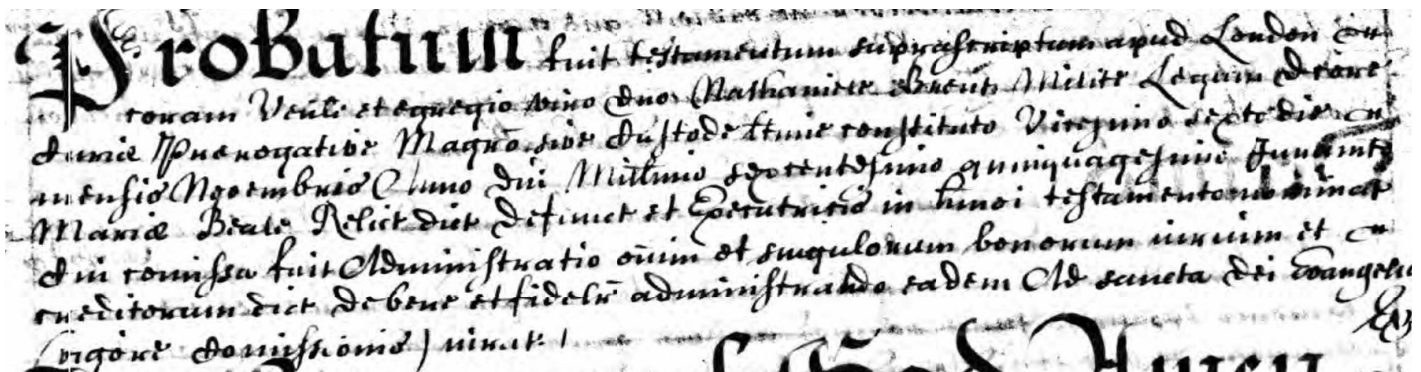 Probatum fuit testamentum suprascriptum apud London
coram Venli et egregio viro dno Nathaniele Brent Milite Legum dcore
Curiæ Prerogative Magro sive Custode ltime constituto Vicesimo sexto die
mensis Novembris Anno dni Millimo sexcentesimo quinquagesimo Juramto
Mariæ Beale Relict dict defunct et Executricis in hmoi testamento nominat
Cui comissa fuit Administratio oium et singulorum bonorum iurium et
creditorum dict debene et fidelr administrando eadem Ad sancta dei Evangelia
(vigore Comissionis) iurat
God Amen